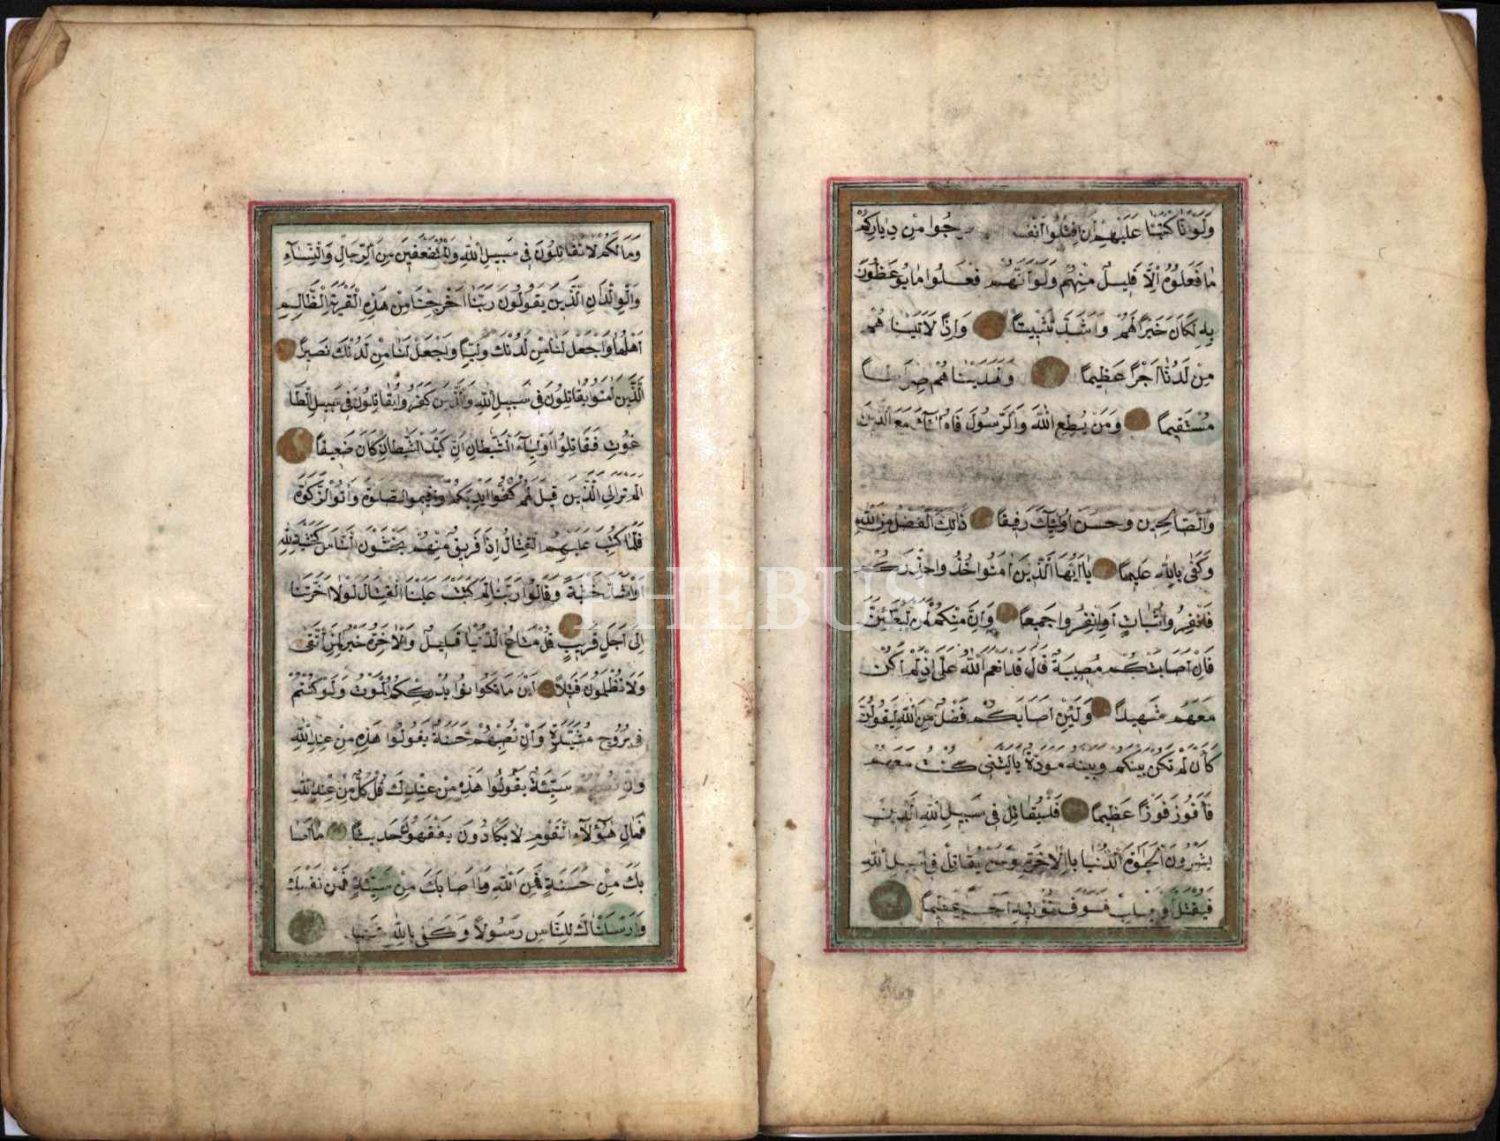 وَلَوْ أَنَّا كَتَبْنَا عَلَيْهِمْ أَنِ اقْتُلُوا أَنْفُ رجُوا مِنْ دِيَارِكُمْ
مَا فَعَلُوهُ إِلَّا قَلِيلٌ مِنْهُمْ وَلَوْ أَنَّهُمْ فَعَلُوا مَا يُوعَظُونَ
بِهِ لَكَانَ خَيْرًا لَهُمْ وَأَشَدَّ تَثْبِيتًا وَإِذًا لَآتَيْنَاهُمْ
مِنْ لَدُنَّا أَجْرًا عَظِيمًا وَلَهَدَيْنَاهُمْ صِرَاطًا
مُسْتَقِيمًا وَمَنْ يُطِعِ اللّٰهَ وَالرَّسُولَ فَأُولٰئِكَ مَعَ الَّذِينَ
وَالصَّالِحِينَ وَحَسُنَ أُولٰئِكَ رَفِيقًا ذَلِكَ الْفَضْلُ مِنَ اللّٰهِ
وَكَفَى بِاللّٰهِ عَلِيمًا يَا أَيُّهَا الَّذِينَ آمَنُوا خُذُوا حِذْرَكُمْ
فَانْفِرُوا ثُبَاتٍ أَوِ انْفِرُوا جَمِيعًا وَإِنَّ مِنْكُمْ لَمَنْ لَيُبَطِّئَنَّ
فَإِنْ أَصَابَتْكُمْ مُصِيبَةٌ قَالَ قَدْ أَنْعَمَ اللّٰهُ عَلَيَّ إِذْ لَمْ أَكُنْ
مَعَهُمْ شَهِيدًا وَلَئِنْ أَصَابَكُمْ فَضْلٌ مِنَ اللّٰهِ لَيَقُولَنَّ
كَأَنْ لَمْ تَكُنْ بَيْنَكُمْ وَبَيْنَهُ مَوَدَّةٌ يَا لَيْتَنِي كُنْتُ مَعَهُمْ
فَأَفُوزَ فَوْزًا عَظِيمًا فَلْيُقَاتِلْ فِي سَبِيلِ اللّٰهِ الَّذِينَ
يَشْرُونَ الْحَيٰوةَ الدُّنْيَا بِالْآخِرَةِ وَمَنْ يُقَاتِلْ فِي سَبِيلِ اللّٰهِ
فَيُقْتَلْ أَوْ يَغْلِبْ فَسَوْفَ نُؤْتِيهِ أَجْرًا عَظِيمًا
وَمَا لَكُمْ لَا تُقَاتِلُونَ فِي سَبِيلِ اللّٰهِ وَالْمُسْتَضْعَفِينَ مِنَ الرِّجَالِ وَالنِّسَاءِ
وَالْوِلْدَانِ الَّذِينَ يَقُولُونَ رَبَّنَا أَخْرِجْنَا مِنْ هَذِهِ الْقَرْيَةِ الظَّالِمِ
أَهْلُهَا وَاجْعَلْ لَنَا مِنْ لَدُنْكَ وَلِيًّا وَاجْعَلْ لَنَا مِنْ لَدُنْكَ نَصِيرًا
الَّذِينَ آمَنُوا يُقَاتِلُونَ فِي سَبِيلِ اللّٰهِ وَالَّذِينَ كَفَرُوا يُقَاتِلُونَ فِي سَبِيلِ الطَّا
غُوتِ فَقَاتِلُوا أَوْلِيَاءَ الشَّيْطَانِ إِنَّ كَيْدَ الشَّيْطَانِ كَانَ ضَعِيفًا
أَلَمْ تَرَ إِلَى الَّذِينَ قِيلَ لَهُمْ كُفُّوا أَيْدِيَكُمْ وَأَقِيمُوا الصَّلٰوةَ وَآتُوا الزَّكٰوةَ
فَلَمَّا كُتِبَ عَلَيْهِمُ الْقِتَالُ إِذَا فَرِيقٌ مِنْهُمْ يَخْشَوْنَ النَّاسَ كَخَشْيَةِ اللّٰهِ
أَوْ أَشَدَّ خَشْيَةً وَقَالُوا رَبَّنَا لِمَ كَتَبْتَ عَلَيْنَا الْقِتَالَ لَوْلَا أَخَّرْتَنَا
إِلَى أَجَلٍ قَرِيبٍ قُلْ مَتَاعُ الدُّنْيَا قَلِيلٌ وَالْآخِرَةُ خَيْرٌ لِمَنِ اتَّقَى
وَلَا تُظْلَمُونَ فَتِيلًا أَيْنَ مَا تَكُونُوا يُدْرِكْكُمُ الْمَوْتُ وَلَوْ كُنْتُمْ
فِي بُرُوجٍ مُشَيَّدَةٍ وَإِنْ تُصِبْهُمْ حَسَنَةٌ يَقُولُوا هَذِهِ مِنْ عِنْدِ اللّٰهِ
وَإِنْ تُصِبْهُمْ سَيِّئَةٌ يَقُولُوا هَذِهِ مِنْ عِنْدِكَ قُلْ كُلٌّ مِنْ عِنْدِ اللّٰهِ
فَمَالِ هٰؤُلَاءِ الْقَوْمِ لَا يَكَادُونَ يَفْقَهُونَ حَدِيثًا مَا أَصَا
بَكَ مِنْ حَسَنَةٍ فَمِنَ اللّٰهِ وَمَا أَصَابَكَ مِنْ سَيِّئَةٍ فَمِنْ نَفْسِكَ
وَأَرْسَلْنَاكَ لِلنَّاسِ رَسُولًا وَكَفَى بِاللّٰهِ شَهِيدًا
PHEBUS